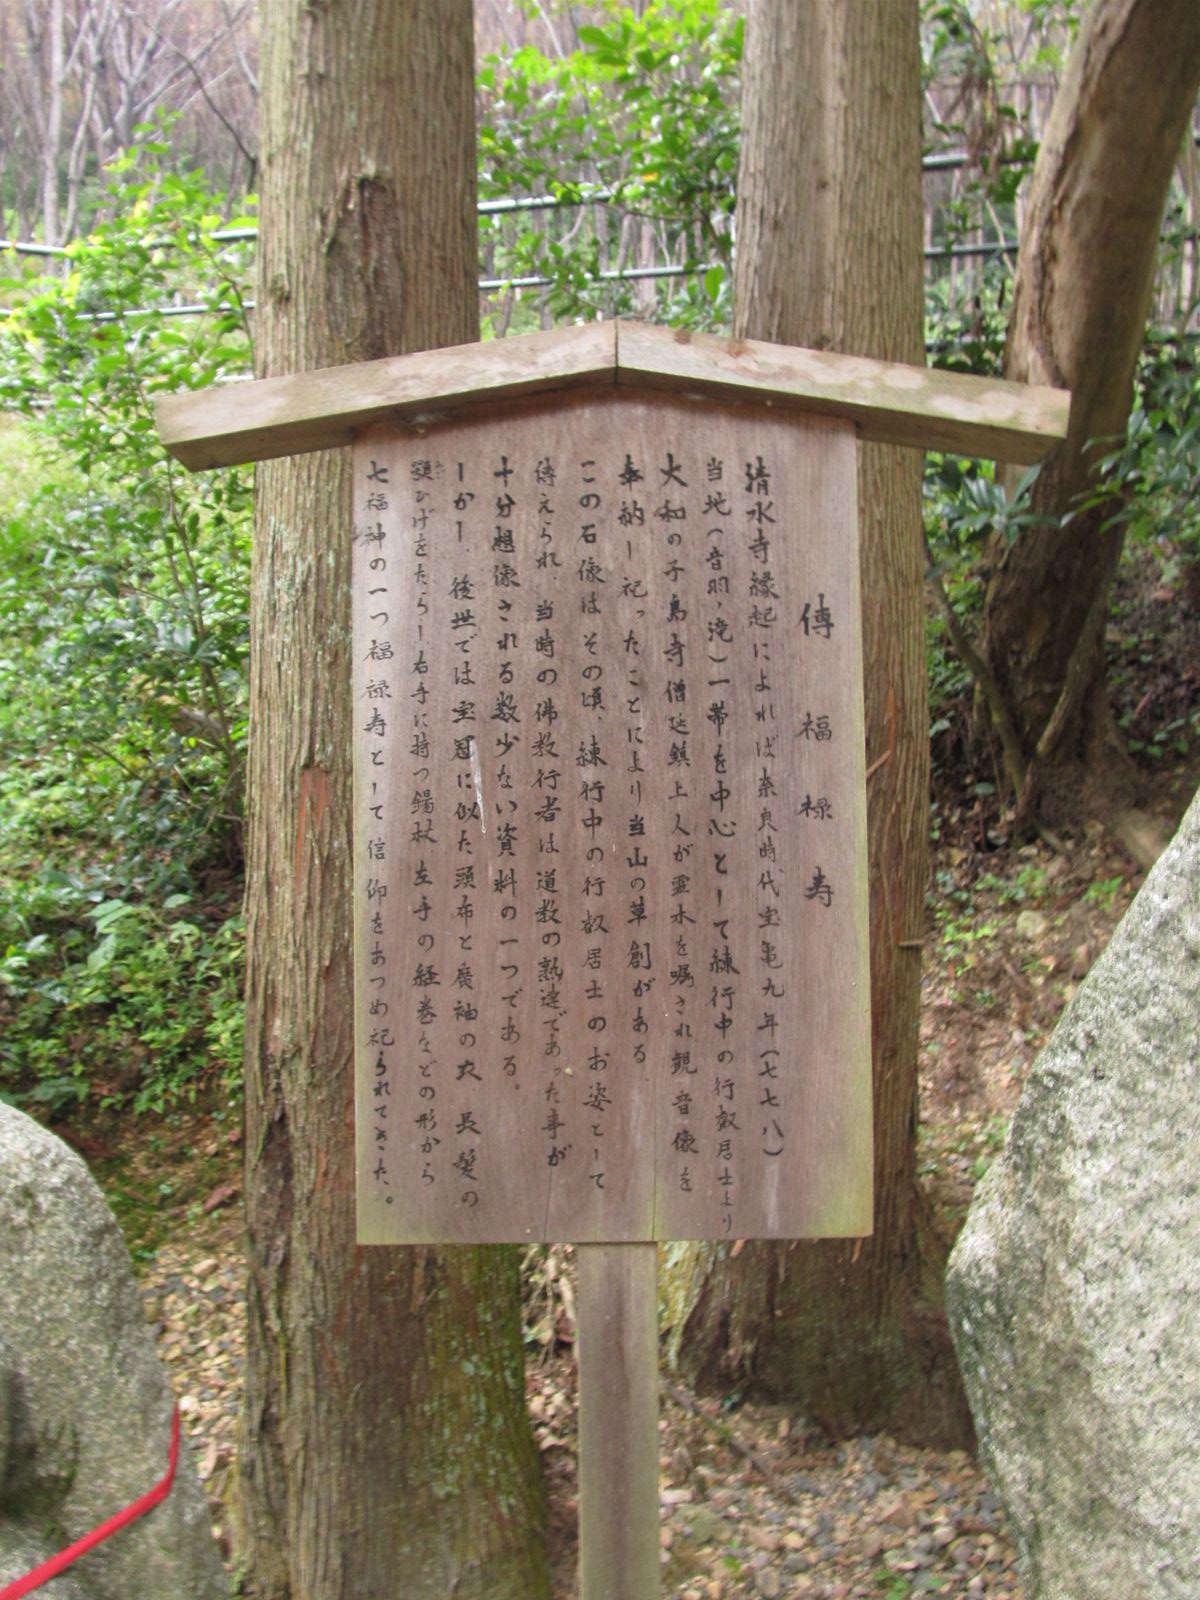 傳 福 禄 寿
清水寺縁起によれば奈良時代宝亀九年(七七八)
当地(音羽ノ滝)一帯を中心として練行中の行叡居士より
大和の子島寺僧延鎮上人が霊水を嘱され観音像を
奉納し祀ったことにより当山の草創がある
この石像はその頃、練行中の行叡居士のお姿として
傳えられ、当時の佛教行者は道教の熟達であった事が
十分想像される数少ない資料の一つである。
しかし、後世では宝冠に似た頭布と廣袖の衣、長髪の
顎ひげをたらし右手に持つ錫杖 左手の経巻などの形から
七福神の一つ福禄寿として信仰をあつめ祀られてきた。